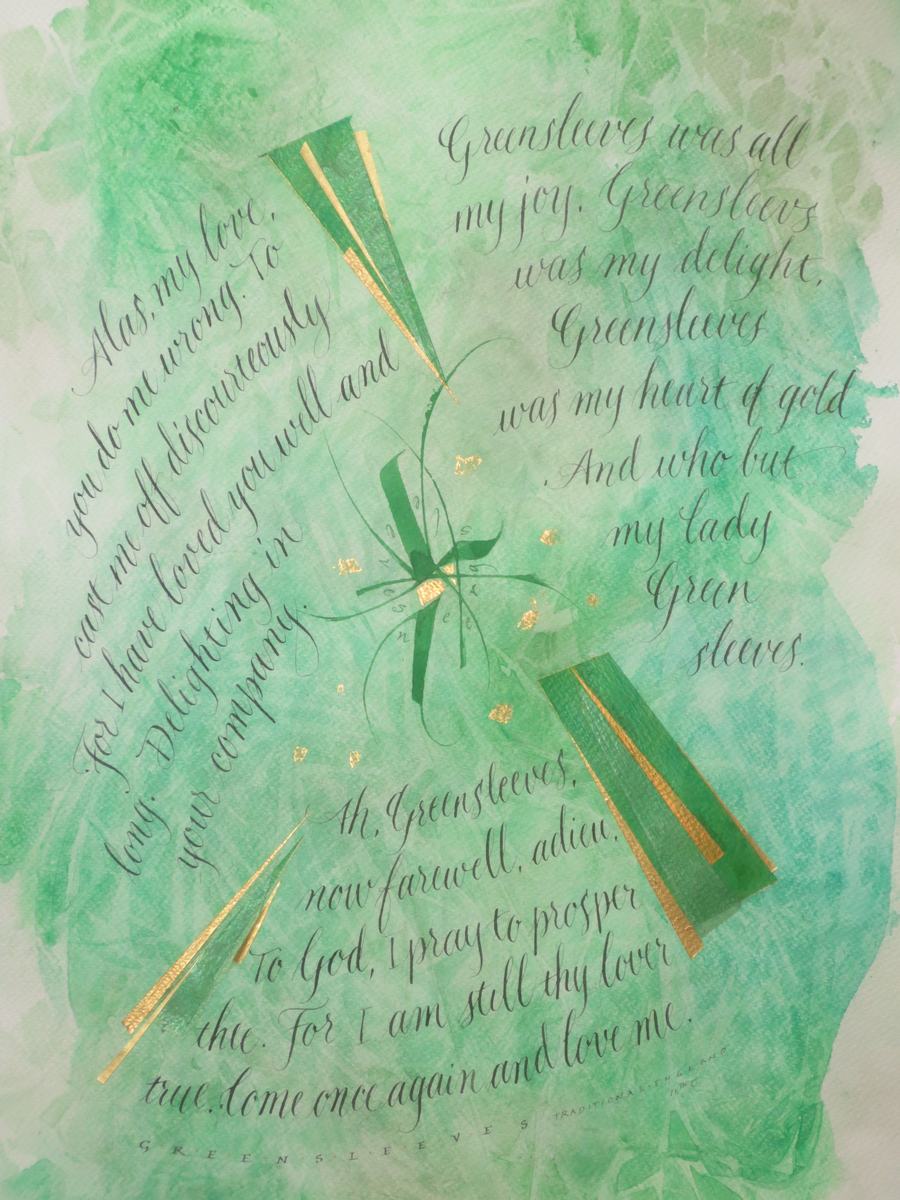 Alas, my love,
you do me wrong. To
cast me off discourteously
For I have loved you well and
long. Delighting in
your company.
Greensleeves was all
my joy. Greensleevs
was my delight,
Greensleeves
was my heart of gold
And who but
my lady
Green
sleeves.
Ah, Greensleeves,
now farewell, adieu,
To God, I pray to prosper
thee. For I am still thy lover
true. Come once again and love me.
GREENSLEEVES TRADITIONAL·ENGLAND